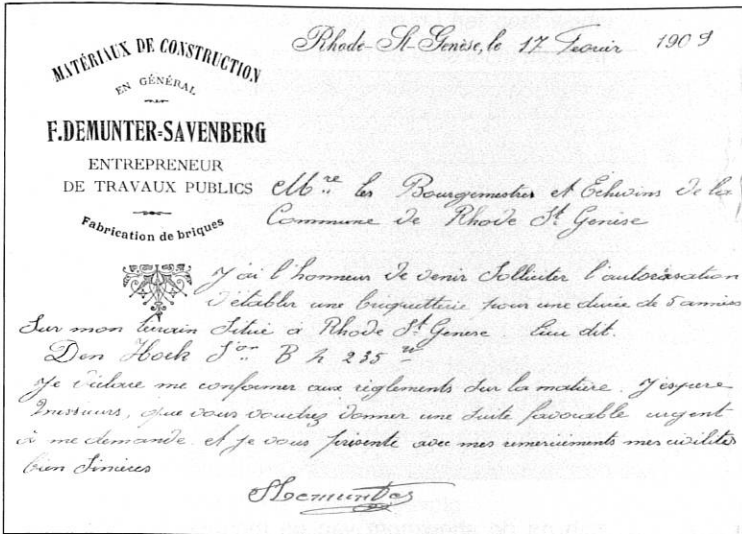 MATÉRIAUX DE CONSTRUCTION
EN GÉNÉRAL
F. DEMUNTER=SAVENBERG
ENTREPRENEUR
DE TRAVAUX PUBLICS
Fabrication de briques
Rhode-St-Genèse, le 17 Fevrir 1909
les Bourgemestres et Echevins de la
Commune de Rhode St Genèse
J'ai l'honneur de venir Solliciter l'autorisation
d'établir une briquetterie pour une durée de 5 années
Sur mon terrain Situé à Rhode St Genese lieu dit.
Den Hoek Son B 235
Je déclare me conformer aux règlements sur la matière. J'espere
messieurs, que vous voudrez donner une suite favorable urgent
à me demande. et je vous présente avec mes remerciments mes civilités
bien Sinceres
Demunter